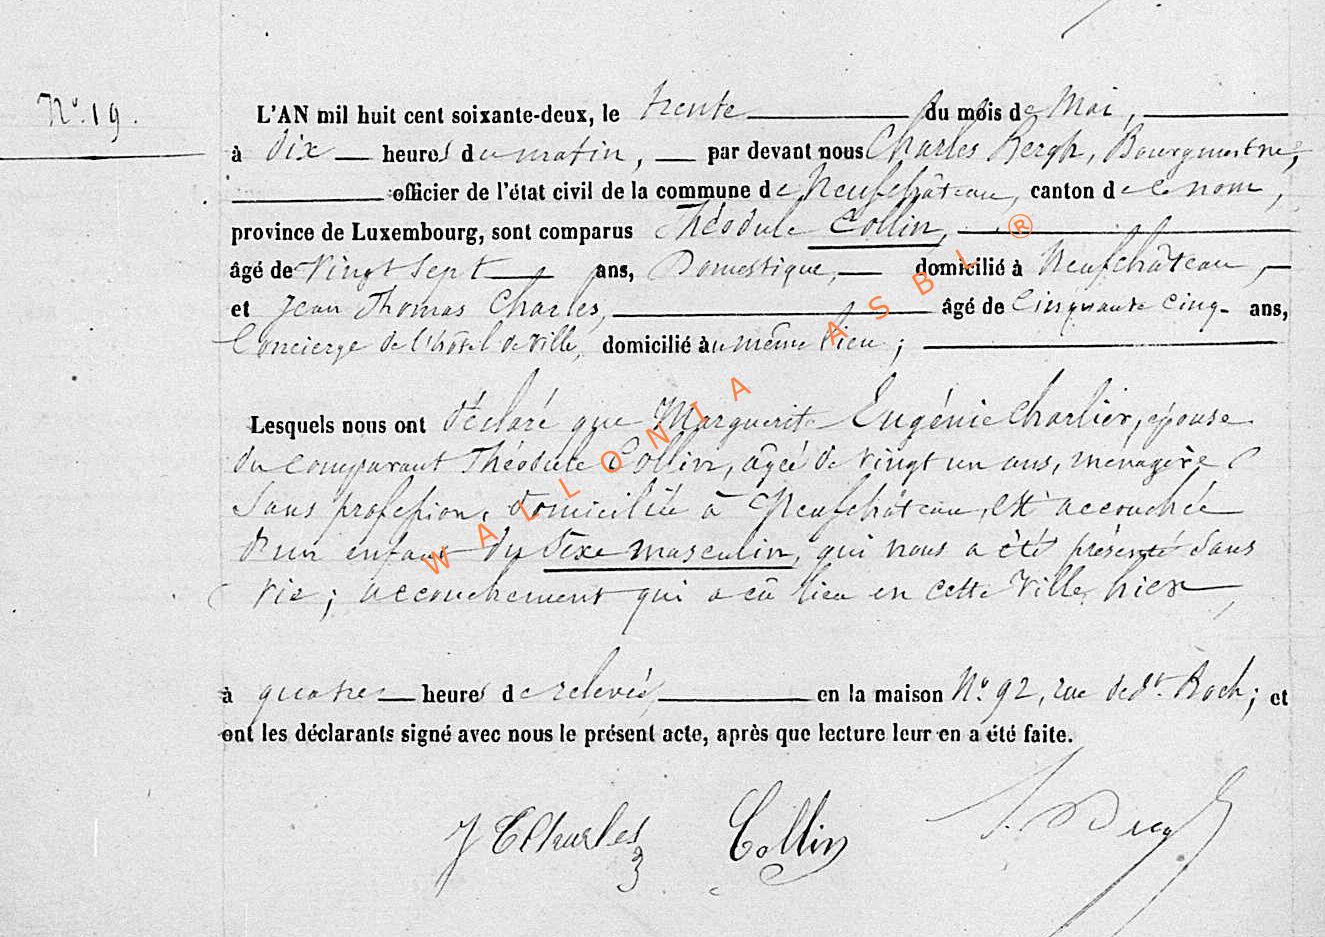 N° 19.
L'AN mil huit cent soixante-deux, le trente du mois de Mai,
à Dix heures du matin, par devant nous Charles Bergh, Bourgmestre,
officier de l'état civil de la commune de Neufchâteau, canton de ce nom,
province de Luxembourg, sont comparus Théodule Collin,
âgé de Vingt Sept ans, Domestique, domicilié à Neufchâteau,
et Jean Thomas Charles, âgé de Cinquante Cinq ans,
Concierge de l'hôtel de Ville, domicilié au même lieu;
Lesquels nous ont déclaré que Marguerite Eugénie Charlier, épouse
du comparant Théodule Collin, âgée de Vingt un ans, menagère
Sans profession, domiciliée à Neufchâteau, est accouchée
d'un enfant du Sexe masculin, qui nous a été présenté Sans
Vie; accouchement qui a eû lieu en cette Ville, hier
à quatre heures de relevée, en la maison N° 92, rue de St. Roch; et
ont les déclarants signé avec nous le présent acte, après que lecture leur en a été faite.
J T Charles Collin
WALLONIA ASBL ®